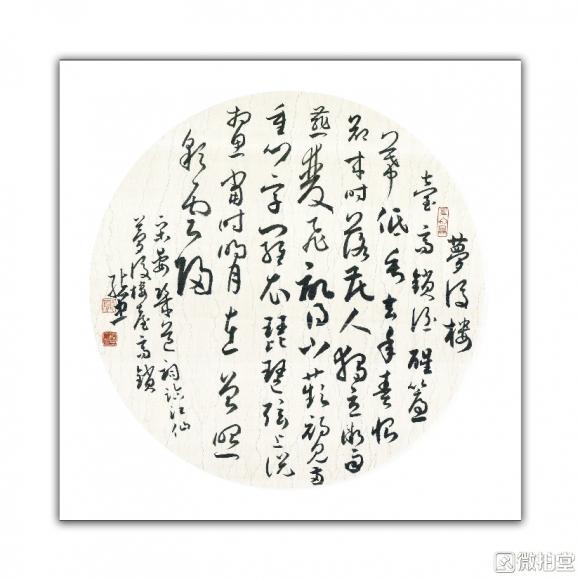 夢後樓
臺高鎖酒醒簾
幕低垂去年春恨
卻來時落花人獨立微雨
燕雙飛記得小蘋初見兩
重心字羅衣琵琶弦上說
相思當時明月在曾照
彩雲歸
宋晏幾道詞臨江仙
夢後樓臺高鎖
微拍堂